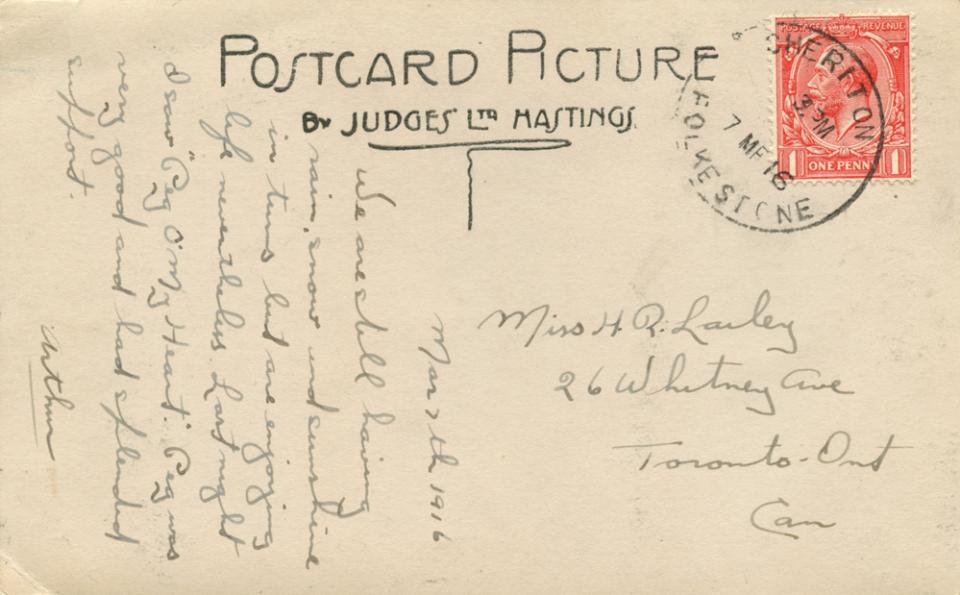 POSTCARD PICTURE
BY JUDGES' LTD HASTINGS.
POSTAGE REVENUE
1 ONE PENNY 1
CHERITON
FOLKESTONE
3 PM
7 MR 16
Mar 7th 1916
We are still having
rain, snow and sunshine
in turns but are enjoying
life nevertheless Last night
I saw "Peg O' My Heart." Peg was
very good and had splendid
support.
Arthur
Miss H. R. Lailey
26 Whitney Ave
Toronto-Ont
Can